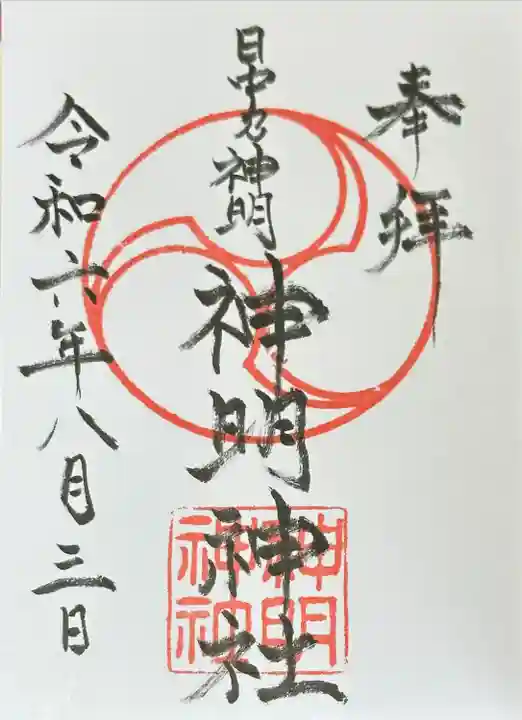 奉拝
神明
神明神社
令和六年八月三日
神明
神社